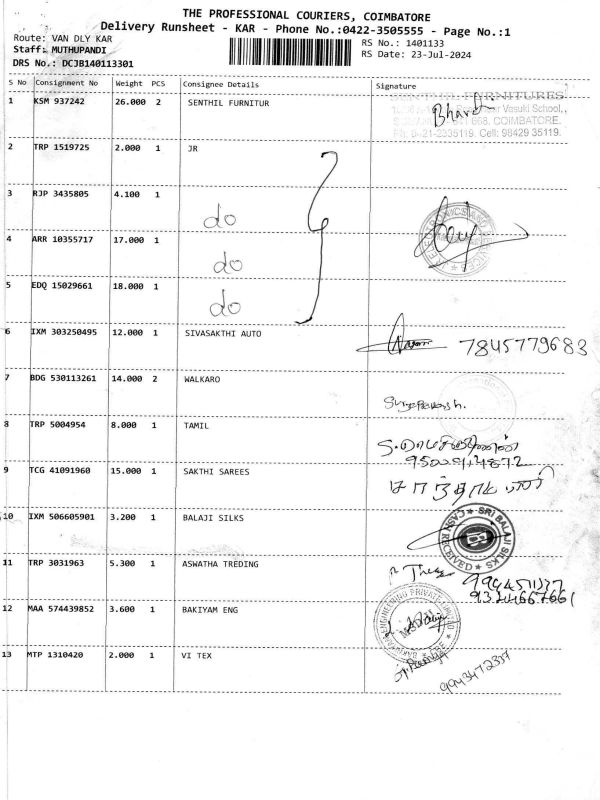 THE PROFESSIONAL COURIERS, COIMBATORE
Delivery Runsheet - KAR - Phone No.:0422-3505555 - Page No.:1
Route: VAN DLY KAR
RS No.: 1401133
Staff: MUTHUPANDI
RS Date: 23-Jul-2024
DRS No.: DCJB140113301
S No Consignment No Weight PCS Consignee Details Signature
1 KSM 937242 26.000 2 SENTHIL FURNITUR
SENTHIL FURNITURES
Vasuki School,
668, COIMBATORE.
Ph: 0421-2335119, Cell: 98429 35119.
2 TRP 1519725 2.000 1 JR
3 RJP 3435805 4.100 1 do
4 ARR 10355717 17.000 1 do
5 EDQ 15029661 18.000 1 do
6 IXM 303250495 12.000 1 SIVASAKTHI AUTO 7845779683
7 BDG 530113261 14.000 2 WALKARO
8 TRP 5004954 8.000 1 TAMIL
9 TCG 41091960 15.000 1 SAKTHI SAREES
10 IXM 506605901 3.200 1 BALAJI SILKS
SRI BALAJI SILKS
RECEIVED
11 TRP 3031963 5.300 1 ASWATHA TREDING
12 MAA 574439852 3.600 1 BAKIYAM ENG
ENGINEERING PRIVATE LIMITED
13 MTP 1310420 2.000 1 VI TEX